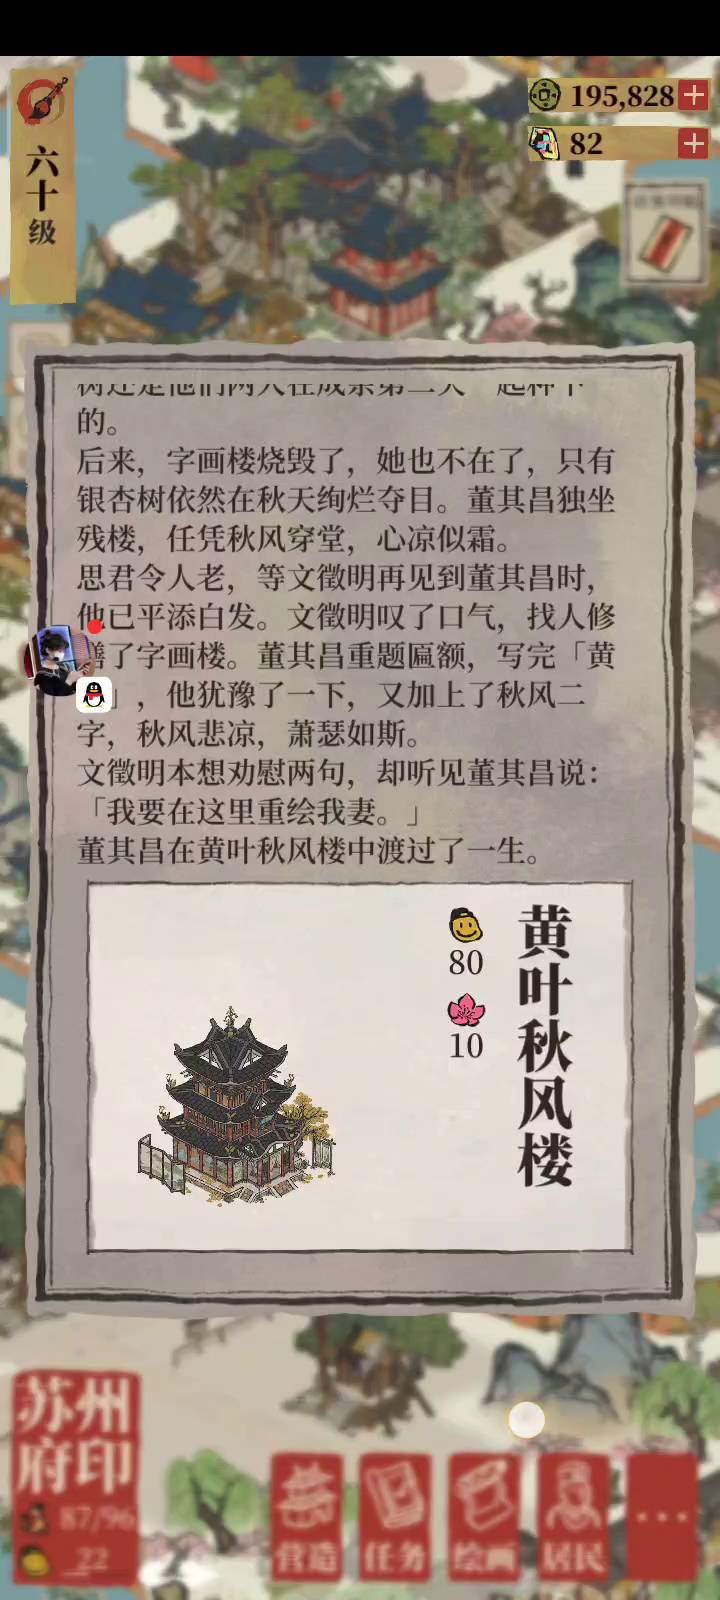 六十级
195,828
82
的。
后来，字画楼烧毁了，她也不在了，只有
银杏树依然在秋天绚烂夺目。董其昌独坐
残楼，任凭秋风穿堂，心凉似霜。
思君令人老，等文徵明再见到董其昌时，
他已平添白发。文徵明叹了口气，找人修
了字画楼。董其昌重题匾额，写完「黄
」，他犹豫了一下，又加上了秋风二
字，秋风悲凉，萧瑟如斯。
文徵明本想劝慰两句，却听见董其昌说：
「我要在这里重绘我妻。」
董其昌在黄叶秋风楼中渡过了一生。
黄叶秋风楼
80
10
苏州
府印
87/96
22
营造
任务
绘画
居民